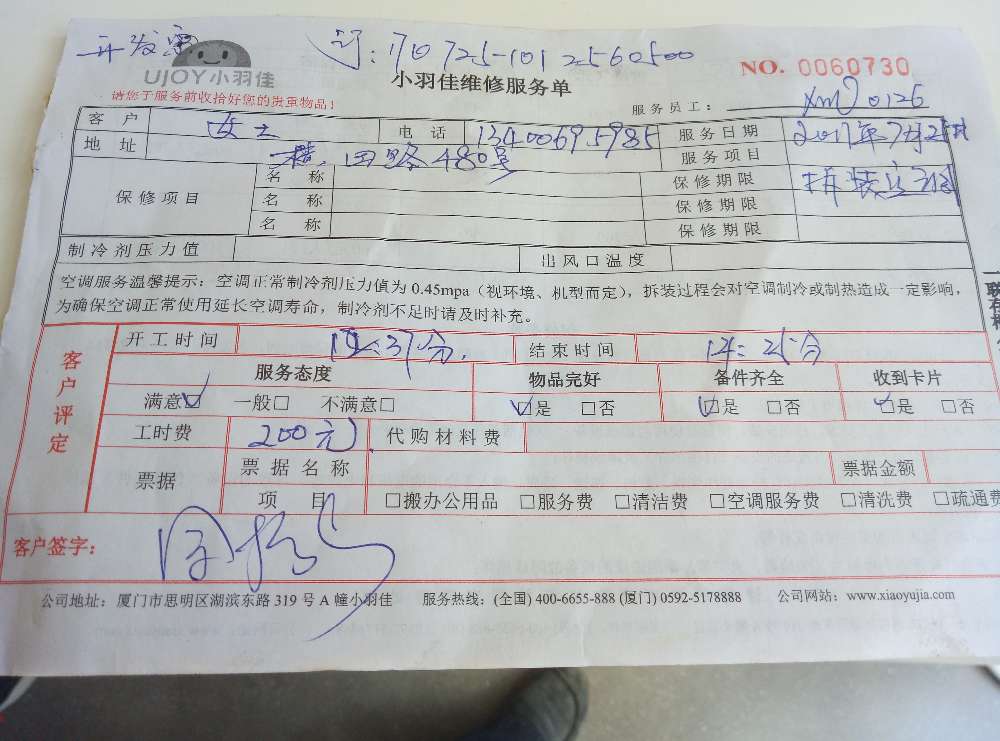 开发票 订: 170725-1012560500
UJOY小羽佳 小羽佳维修服务单 NO. 0060730
请您于服务前收拾好您的贵重物品! 服务员工: xm 0126
客户 女士 电话 13400695985 服务日期 2017年7月25日
地址 横四路480号 服务项目 拆装
保修项目 名称 保修期限
名称 保修期限
名称 保修期限
制冷剂压力值 出风口温度
空调服务温馨提示: 空调正常制冷剂压力值为 0.45mpa (视环境、机型而定), 拆装过程会对空调制冷或制热造成一定影响,
为确保空调正常使用延长空调寿命, 制冷剂不足时请及时补充。
客户评定
开工时间 结束时间
服务态度 物品完好 备件齐全 收到卡片
满意☑ 一般□ 不满意□ ☑是 □否 ☑是 □否 ☑是 □否
工时费 200元 代购材料费
票据 票据名称 票据金额
项目 □搬办公用品 □服务费 □清洁费 □空调服务费 □清洗费 □疏通费
客户签字:
公司地址: 厦门市思明区湖滨东路 319 号 A 幢小羽佳 服务热线: (全国) 400-6655-888 (厦门) 0592-5178888 公司网站: www.xiaoyujia.com